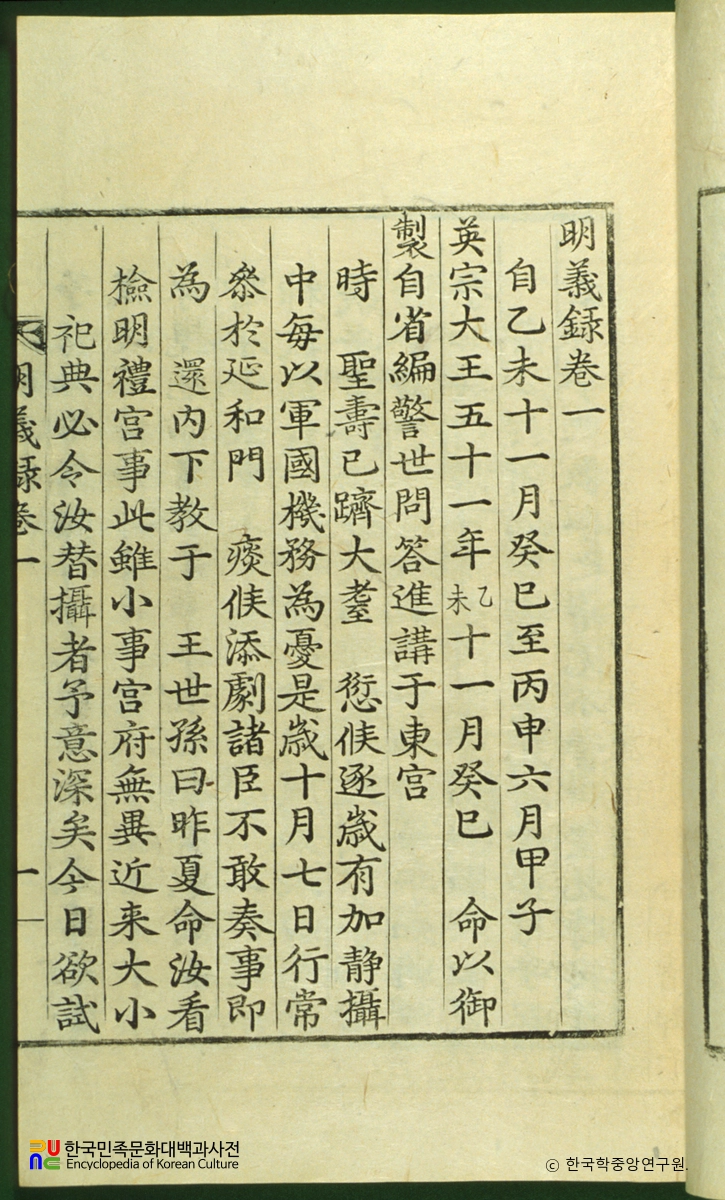 明義録卷一
自乙未十一月癸巳至丙申六月甲子
英宗大王五十一年乙未十一月癸巳 命以御
製自省編警世問答進講于東宮
時 聖壽已躋大耋 愆候逐歲有加静攝
中每以軍國機務為憂是歲十月七日行常
叅於延和門 痰候添劇諸臣不敢奏事即
為 還內下教于 王世孫曰昨夏命汝看
檢明禮宮事此雖小事宮府無異近来大小
祀典必令汝替攝者予意深矣今日欲試
明義録卷一
一
한국민족문화대백과사전
Encyclopedia of Korean Culture
ⓒ 한국학중앙연구원.